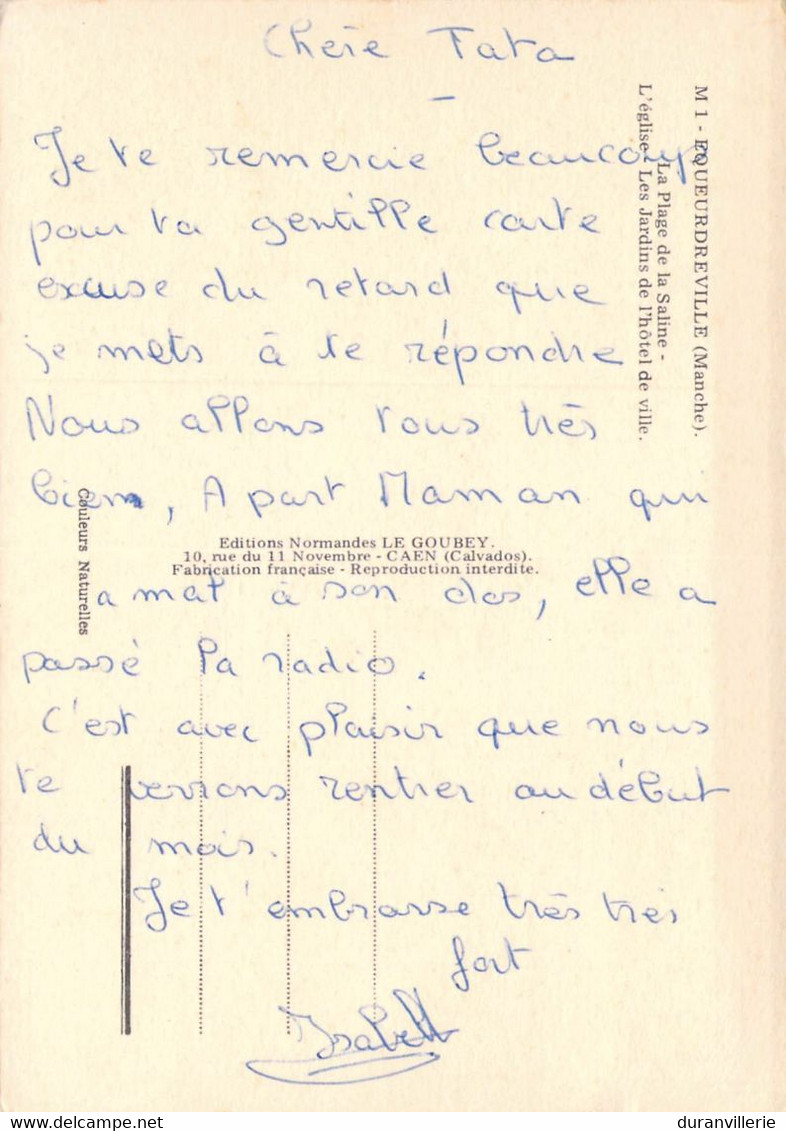 Chère Tata
Je te remercie beaucoup
pour ta gentille carte
excuse du retard que
je mets à te répondre
Nous allons tous très
bien, A part Maman qui
a mal à son dos, elle a
passé la radio.
C'est avec plaisir que nous
te verrons rentrer au début
du mois.
Je t'embrasse très très
fort
Isabelle
M 1 - EQUEURDREVILLE (Manche).
La Plage de la Saline -
L'église - Les Jardins de l'hôtel de ville.
Couleurs Naturelles
Editions Normandes LE GOUBEY.
10, rue du 11 Novembre - CAEN (Calvados).
Fabrication française - Reproduction interdite.
duranvillerie